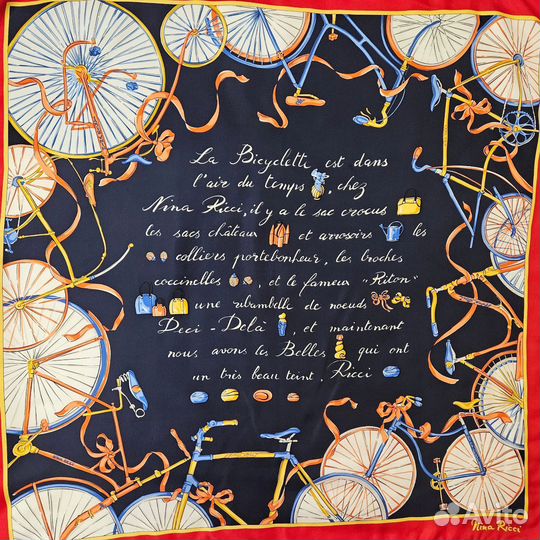 La Bicyclette est dans
l'air du temps, chez
Nina Ricci, il y a le sac crocus
les sacs châteaux et arrosoirs les
colliers portebonheur, les broches
coccinelles, et le fameux "Riton"
une ribambelle de noeuds
Deci - Delà, et maintenant
nous avons les Belles qui ont
un très beau teint. Ricci
Nina Ricci
Avito